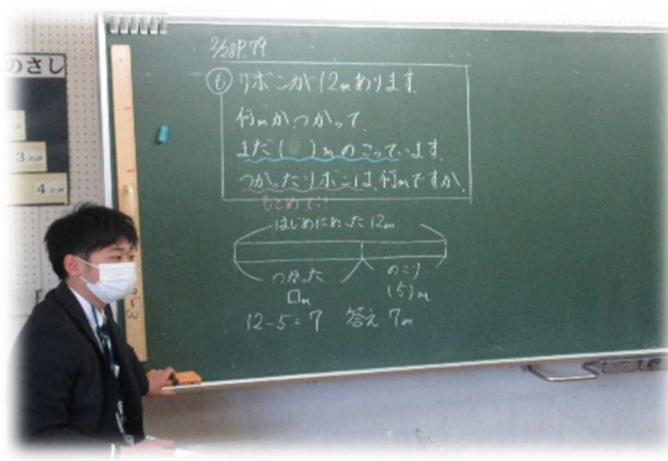 のさし
3のめ
4のめ
2/28 P.79
も リボンが12mあります。
何mかつかって、
まだ( )mのこっています。
つかったリボンは、何mですか。
もとめてい!
はじめにあった12m
つかった
のこり
□m
(5)m
12-5=7 答え 7m